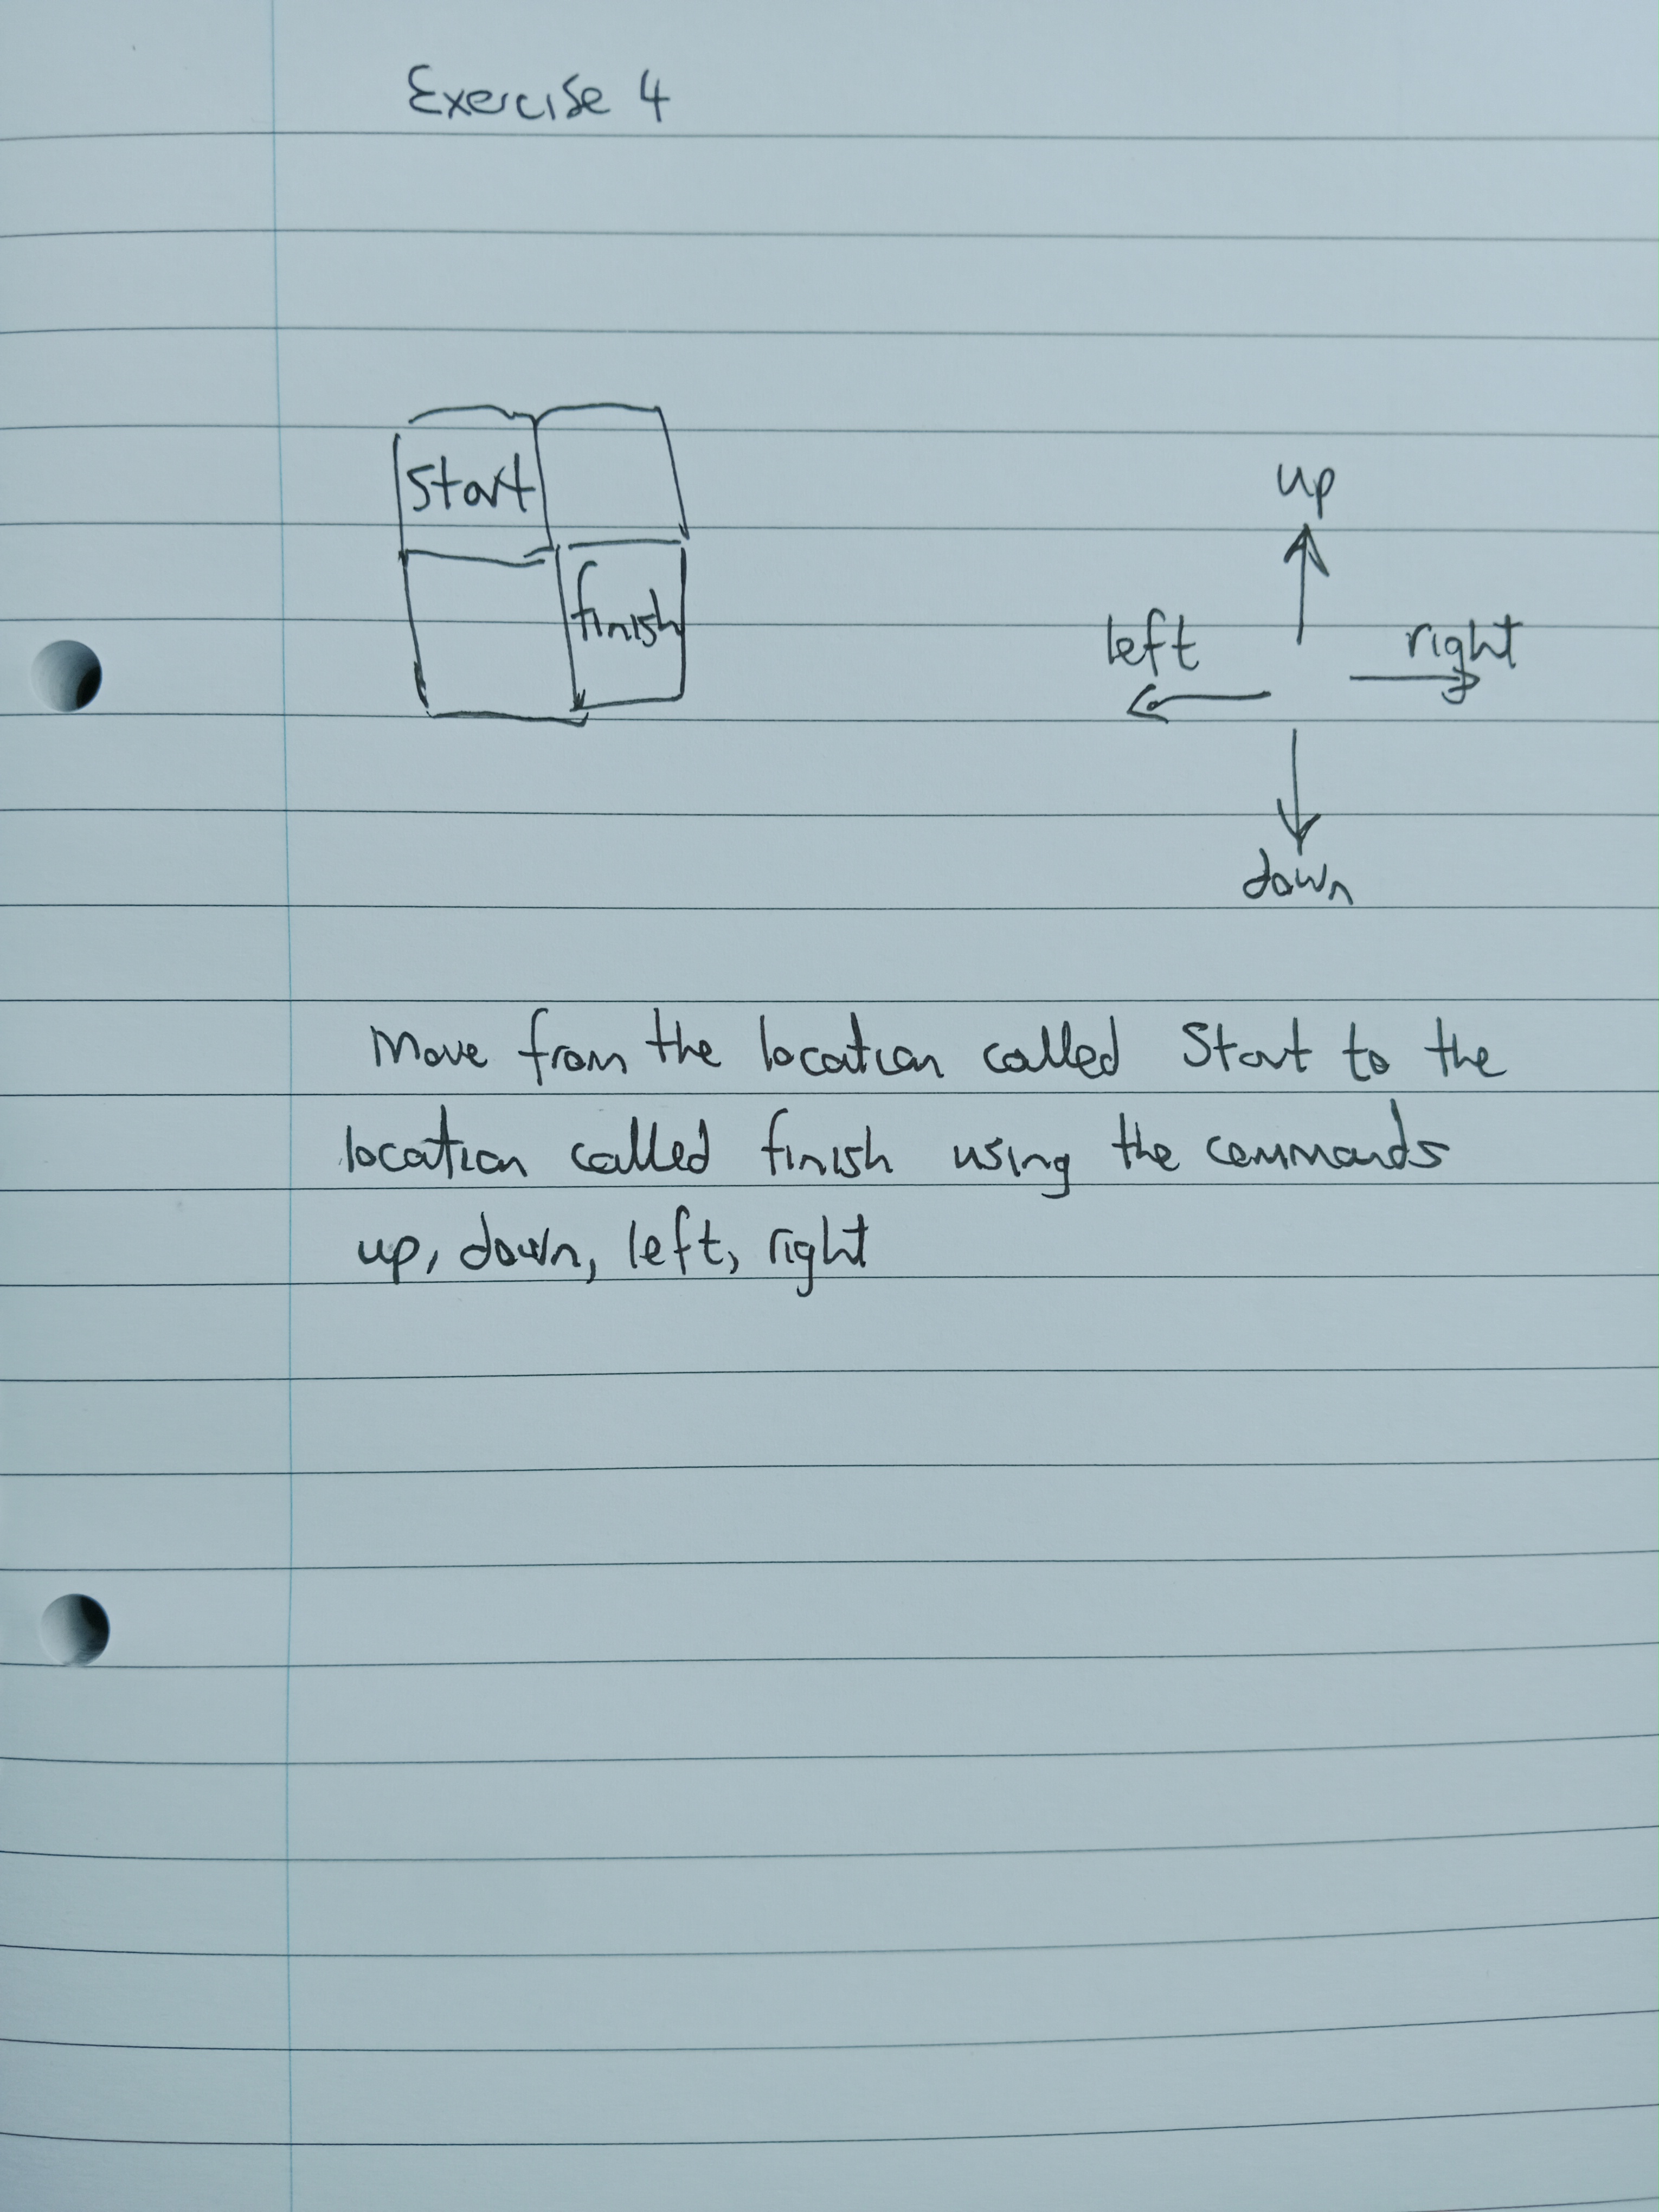 Exercise 4
Start
finish
up
left
right
down
Move from the location called Start to the
location called finish using the commands
up, down, left, right